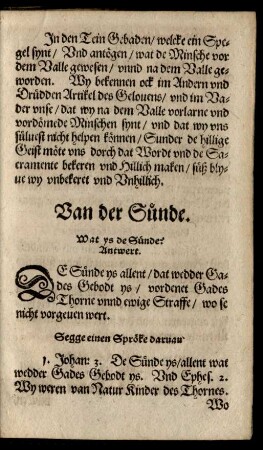 In den Tein Gebaden/ welcke ein Spe-
gel synt/ Vnd antögen/ wat de Minsche vor
dem Valle gewesen/ vnnd na dem Valle ge-
worden. Wy bekennen ock im Andern vnd
Drüdden Artikel des Gelouens/ vnd im Va-
der vnse/ dat wy na dem Valle vorlarne vnd
vordömede Minschen synt/ vnd dat wy vns
süluest nicht helpen können/ Sunder de hillige
Geist möte vns dorch dat Wordt vnd de Sa-
cramente bekeren vnd Hillich maken/ süß bly-
ue wy vnbekeret vnd Vnhillich.
Van der Sünde.
Wat ys de Sünde?
Antwert.
DE Sünde ys allent/ dat wedder Ga-
des Gebodt ys/ vordenet Gades
Thorne vnnd ewige Straffe/ wo se
nicht vorgeuen wert.
Segge einen Spröke daruan
1. Johan: 3. De Sünde ys/ allent wat
wedder Gades Gebodt ys. Vnd Ephes. 2.
Wy weren van Natur Kinder des Thornes.
Wo